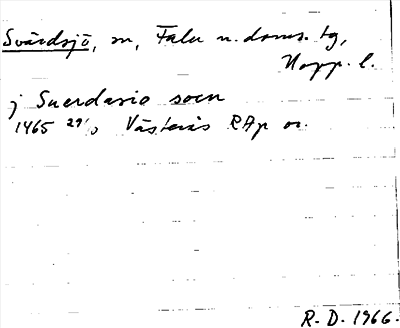 Svärdsjö, sn, Falu n. doms. tg,
Kopp. l.
j Suerdasio socn
1465 29/10 Västerås RAp or.
R. D. 1966.